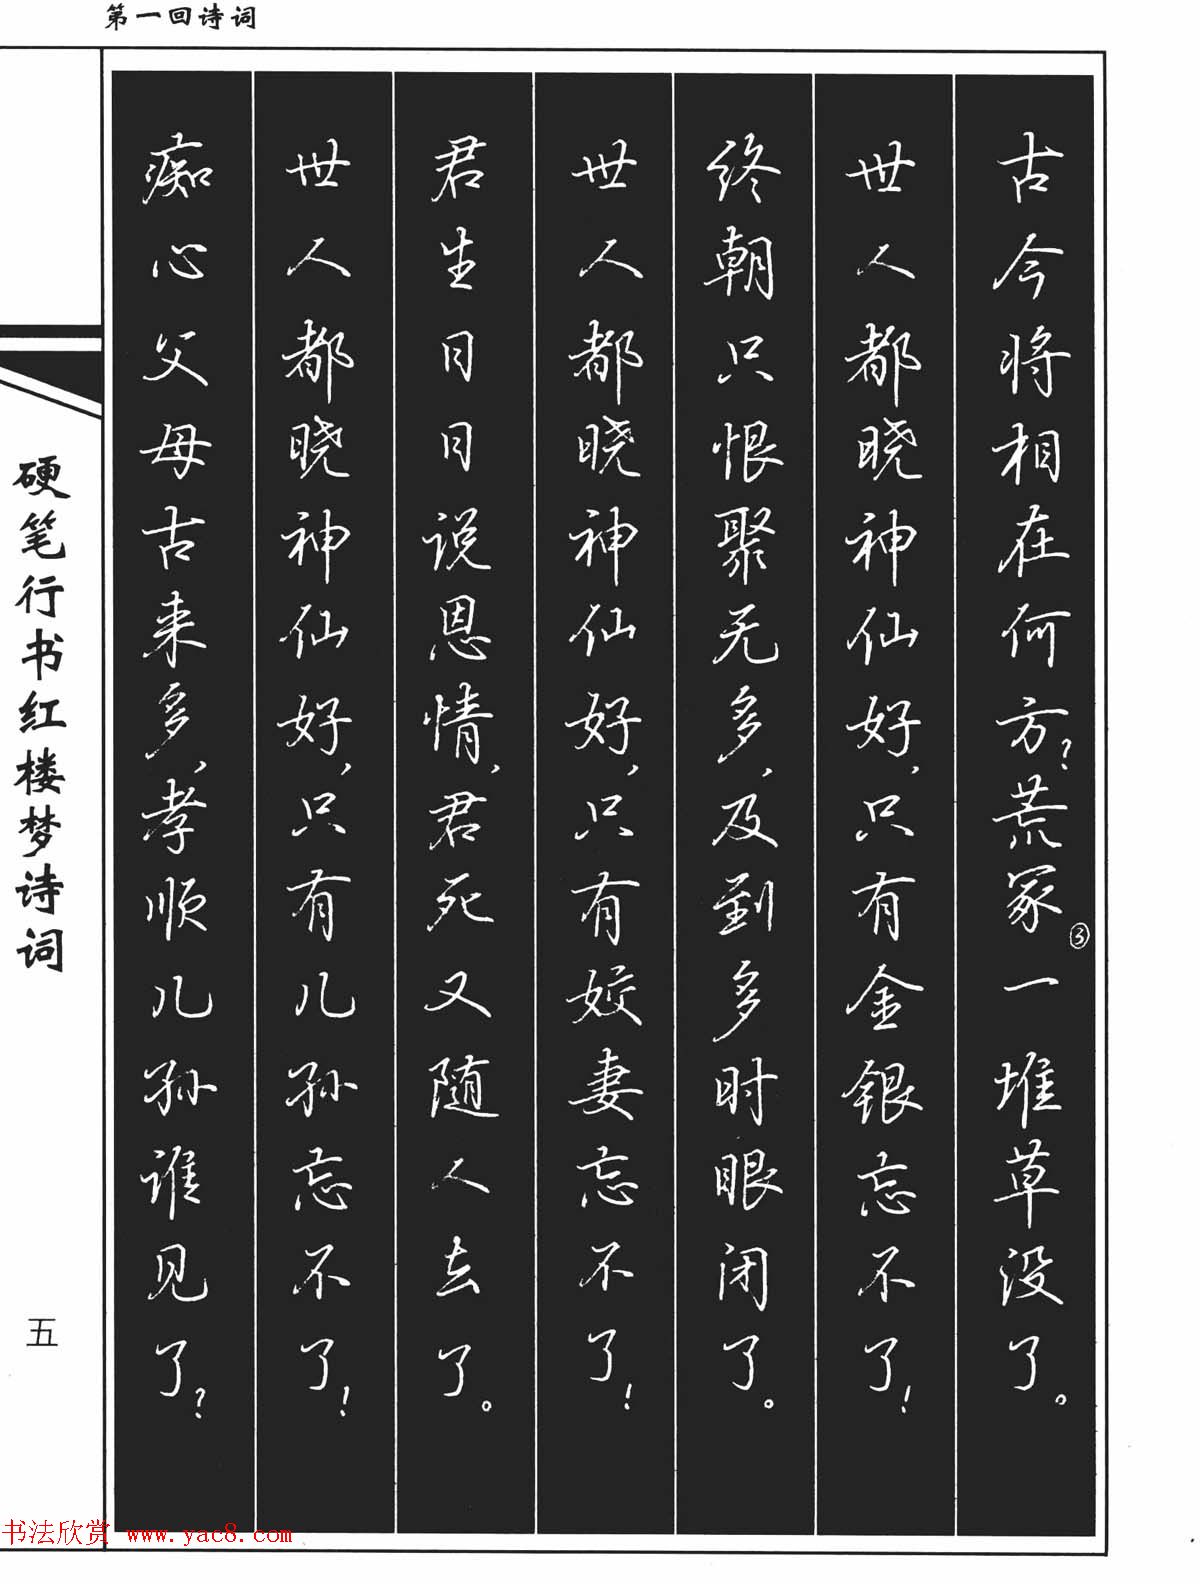 第一回诗词
古今将相在何方？荒冢③一堆草没了。
世人都晓神仙好，只有金银忘不了！
终朝只恨聚无多，及到多时眼闭了。
世人都晓神仙好，只有姣妻忘不了！
君生日日说恩情，君死又随人去了。
世人都晓神仙好，只有儿孙忘不了！
痴心父母古来多，孝顺儿孙谁见了？
硬笔行书红楼梦诗词
五
书法欣赏 www.yac8.com